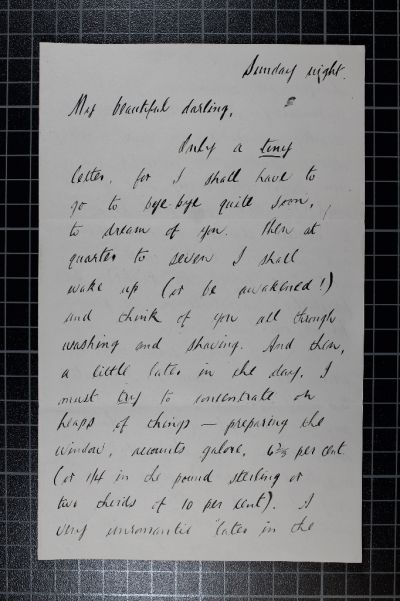 Sunday night.
My beautiful darling,
Only a tiny
letter, for I shall have to
go to bye-bye quite soon,
to dream of you. Then at
quarter to seven I shall
wake up (or be awakened!)
and think of you all through
washing and shaving. And then,
a little later in the day, I
must try to concentrate on
heaps of things — preparing the
window, accounts galore, 6⅔ per cent
(or 1/4 in the pound sterling or
two thirds of 10 per cent).
very unromantic later in the